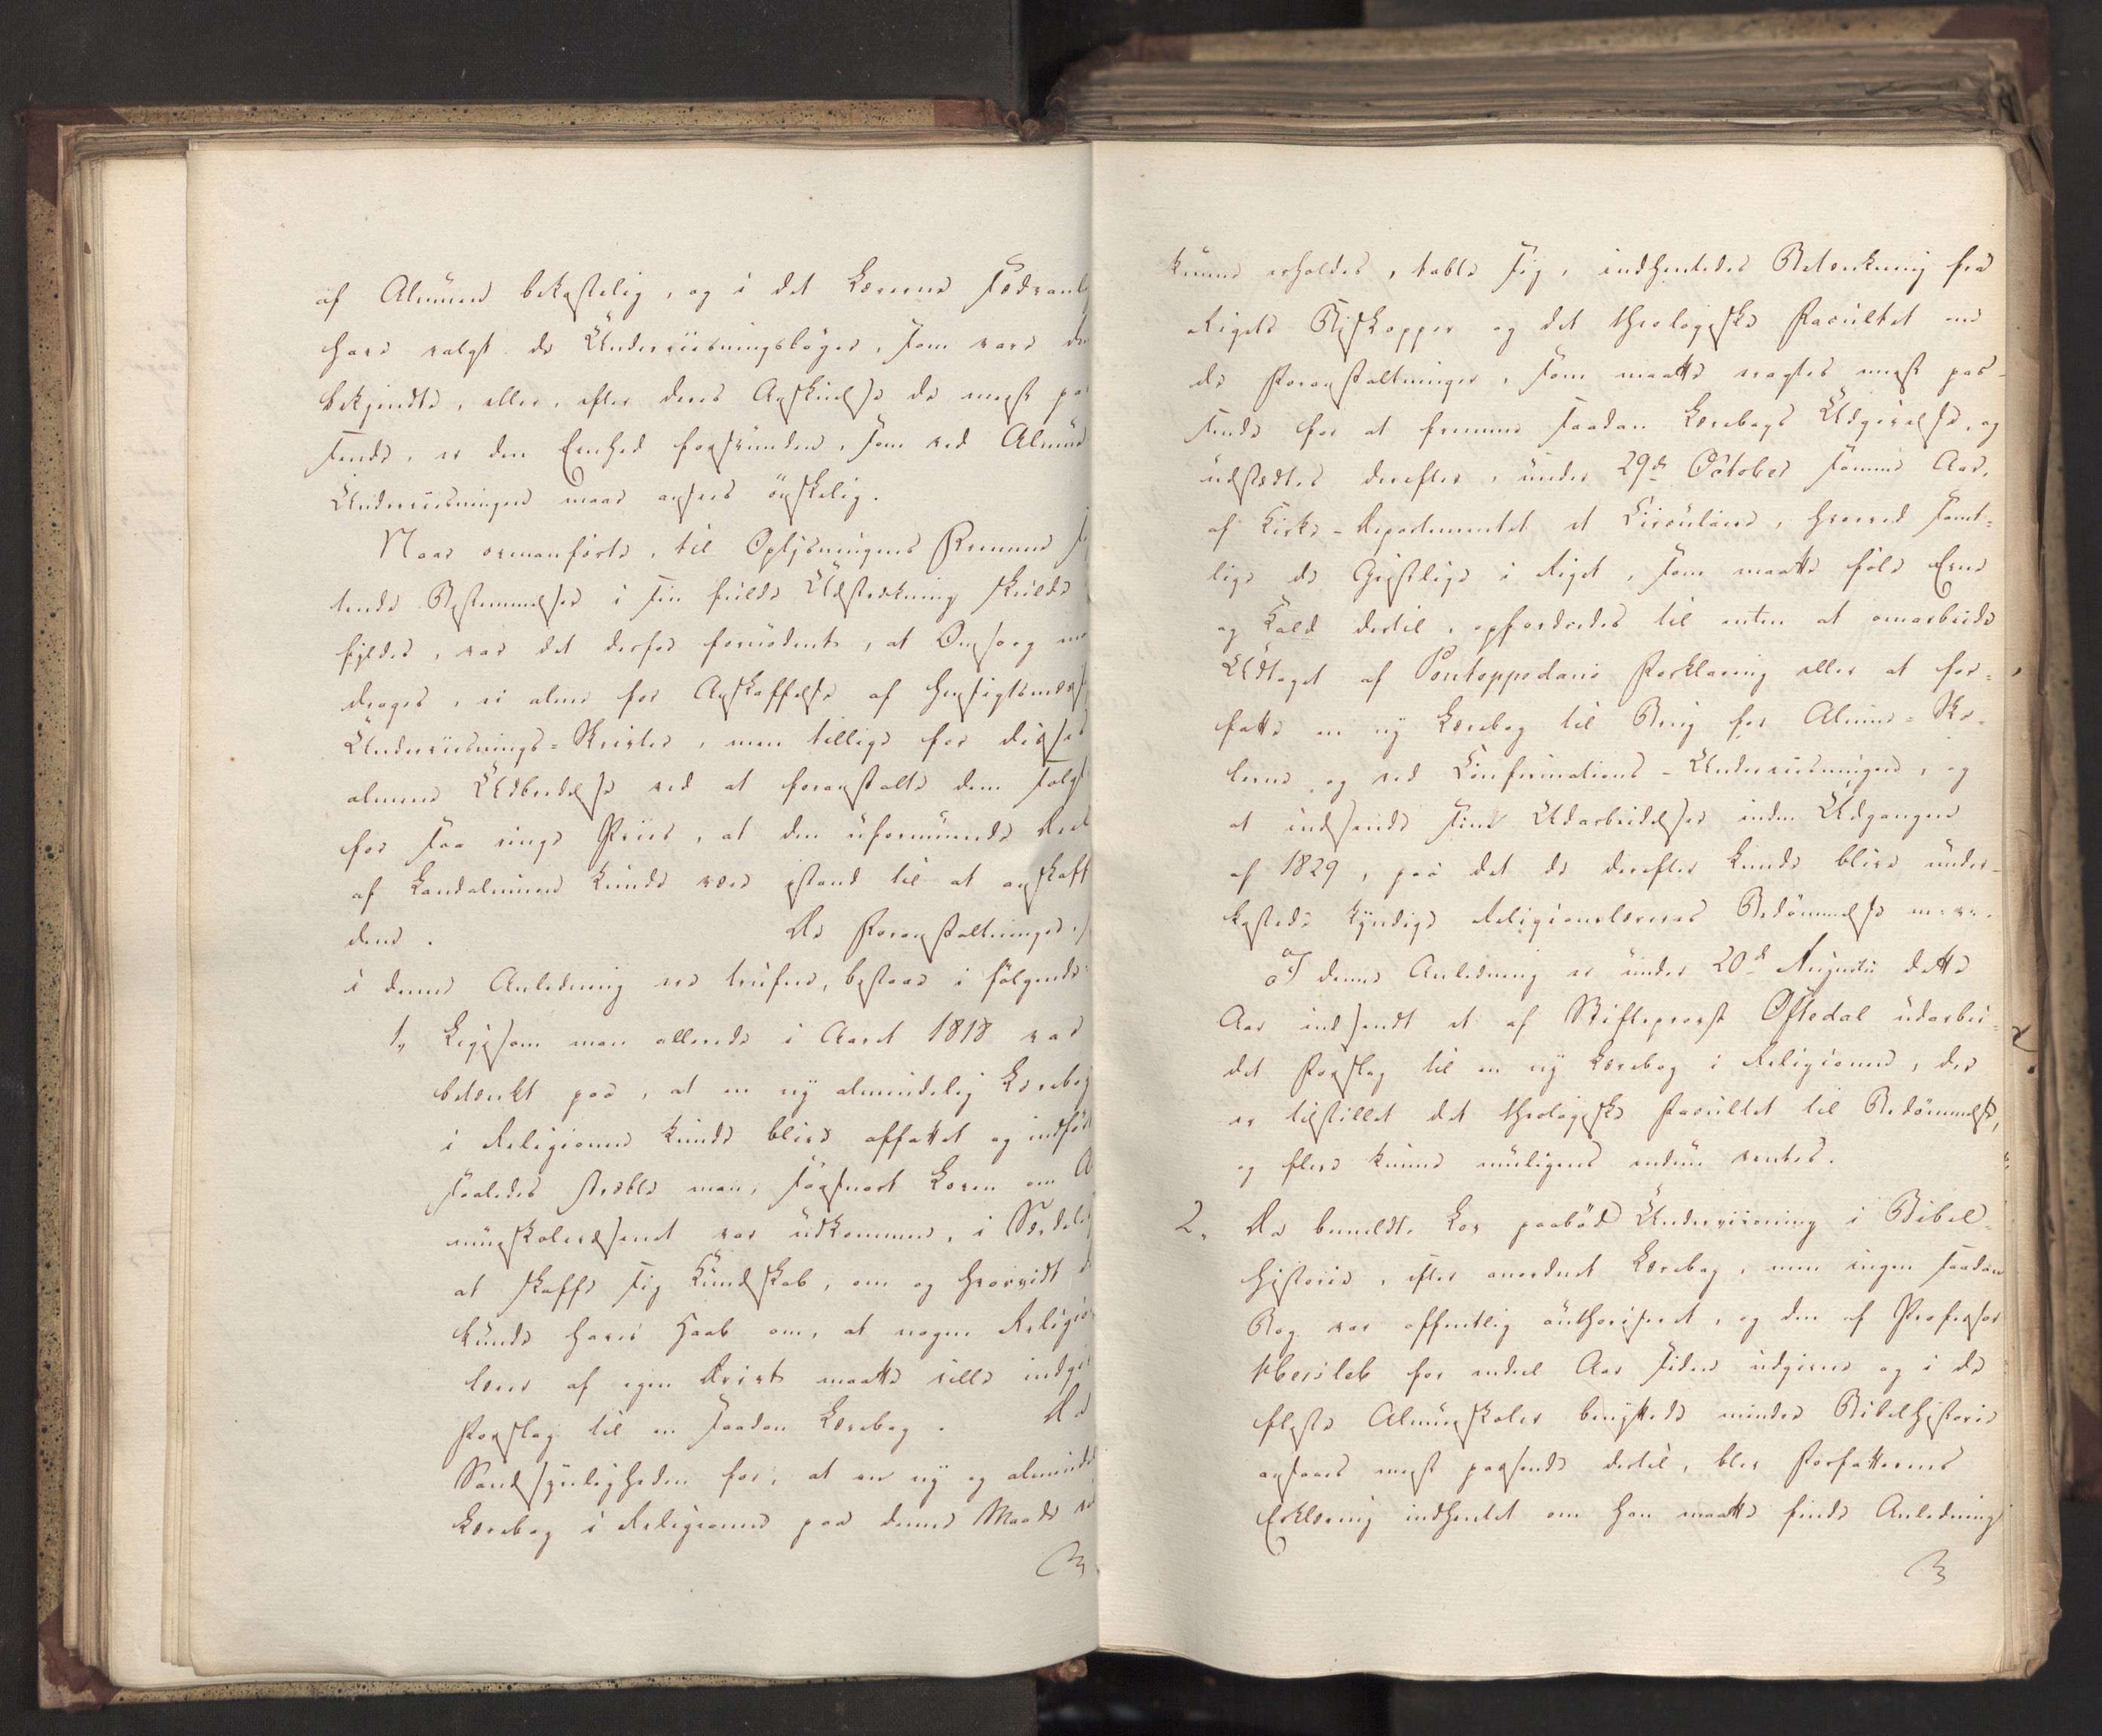 af Almuen bekostelig, og i det Lærerne sædvanl
have valgt de Underviisningsbøger, som vare de
bekjendte, eller, efter deres Anskuelse de mest pas
sende, er den Eenhed forsvunden, som ved Almue
Underviisningen maae ansees ønskelig.
Naar ovenanførte, til Oplysningens Fremme si
tende Bestemmelser i sin fulde Udstrækning skulde
fyldes, var det derfor fornødent, at Omsorg m
drages, ei alene for Anskaffelse af hensigtsmæss
Underviisnings-Skrivter, men tillige for disses
almene Udbredelse ved at foranstalte dem solgt
for saa ringe Priis, at den uformuende Deel
af Landalmuen kunde være istand til at anskaffe
dem. De Foranstaltninger,
i denne Anledning ere trufne, bestaae i følgende:
1, Ligesom man allerede i Aaret 1818 var
betænkt paa, at en ny almindelig Lærebog
i Religionen kunde blive affattet og indført
saaledes stræbte man, saasnart Loven om A
mueskolevæsenet var udkommen, i Særdeles
at skaffe sig Kundskab, om og hvorvidt d
kunde haves Haab om, at nogen Religions
lærer af egen Drivt maatte ville indgive
Forslag til en saadan Lærebog. Da
Sandsynligheden for, at en ny og almindel
Lærebog i Religionen paa denne Maade vil
kunne erholdes, tabte sig, indhentedes Betænkning fra
Rigets Biskopper og det theologiske Facultet om
de Foranstaltninger, som maatte eragtes mest pas-
sende for at fremme saadan Lærebogs Udgivelse, og
udstedtes derefter, under 29de October samme Aar,
af Kirke-Departementet et Circulaire, hvorved samt-
lige de Geistlige i Riget, som maatte føle Evne
og Kald dertil, opfordredes til enten at omarbeide
Udtoget af Pontoppidans Forklaring eller at for-
fatte en ny Lærebog til Brug for Almue-Sko-
lerne og ved Confirmations-Underviisningen, og
at indsende sine Udarbeidelser inden Udgangen
af 1829, paa det de derefter kunde blive under-
kastede kyndige Religionslæreres Bedømmelse m.v.v.
I denne Anledning er under 20de Augustii dette
Aar indsendt et af Stiftsprovst Oftedal udarbei-
det Forslag til en ny Lærebog i Religionen, der
er tilstillet det theologiske Facultet til Bedømmelse,
og flere kunne muligens endnu ventes.
2, Da bemeldte Lov paabød Underviisning i Bibel-
historie, efter anordnet Lærebog, men ingen saadan
Bog var offentlig authoriseret, og den af Professor
Hersleb for endeel Aar siden udgivne og i de
fleste Almueskoler benyttede mindre Bibelhistorie
ansaaes mest passende dertil, blev Forfatterens
Erklæring indhentet om han maatte finde Anledning